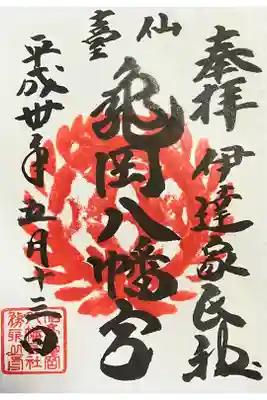 奉拝 伊達家氏神
仙臺
亀岡八幡宮
平成卅年五月十二日